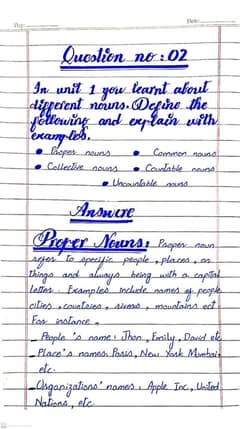 Date:
Question no : 02
In unit 1 you learnt about
different nouns. Define the
following and explain with
examples.
• Proper nouns • Common nouns
• Collective nouns • Countable nouns
• Uncountable nouns
Answre
Proper Nouns: Proper noun
refer to specific people, places, or
things and always being with a capital
letter. Examples include names of people
cities, countries, rivers, mountains ect
For instance.
_ People 's name: Jhon, Emily, David etc
_ Place's names: Paris, New York Mumbai,
etc.
_ Organizations' names: Apple Inc, United
Nations, etc